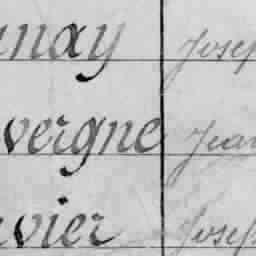 unay Josep
vergne Jean
vier Josep